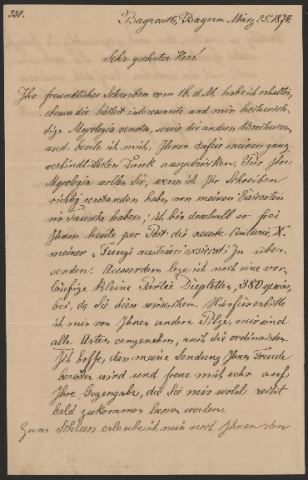 330.
Bayreuth, Bayern, März 25. 1874.
Sehr geehrter Herr!
Ihr freundliches Schreiben vom 16. d. M. habe ich erhalten,
ebenso die höchst interessante und mir
Mycologia veneta, sowie die andern
und beeile ich mich, Ihnen dafür meinen ganz
verbindlichsten Dank auszudrücken. Eine
Mycologia wollen Sie, wenn ich Ihr Schreiben
richtig verstanden habe, von meinen Exsiccaten
im Tausche haben; ich bin desshalb so frei
Ihnen heute per Post die neueste Centurie, X.
meiner „Fungi austriaci exsiccati" zu über-
senden. Ausserdem lege ich noch eine vor-
läufige kleine Partie 380
bei, da Sie diese wünschen. Hierfür erbitte
ich mir von Ihnen andere Pilze, mir sind
alle Arten angenehm, auch die ordinärsten.
Ich hoffe, dass meine Sendung Ihnen Freude
bereiten wird und freue mich sehr auf
Ihre Gegengabe, die Sie mir wohl recht
bald zukommen lassen werden.
Zum Schluss erlaube ich mir noch Ihnen den